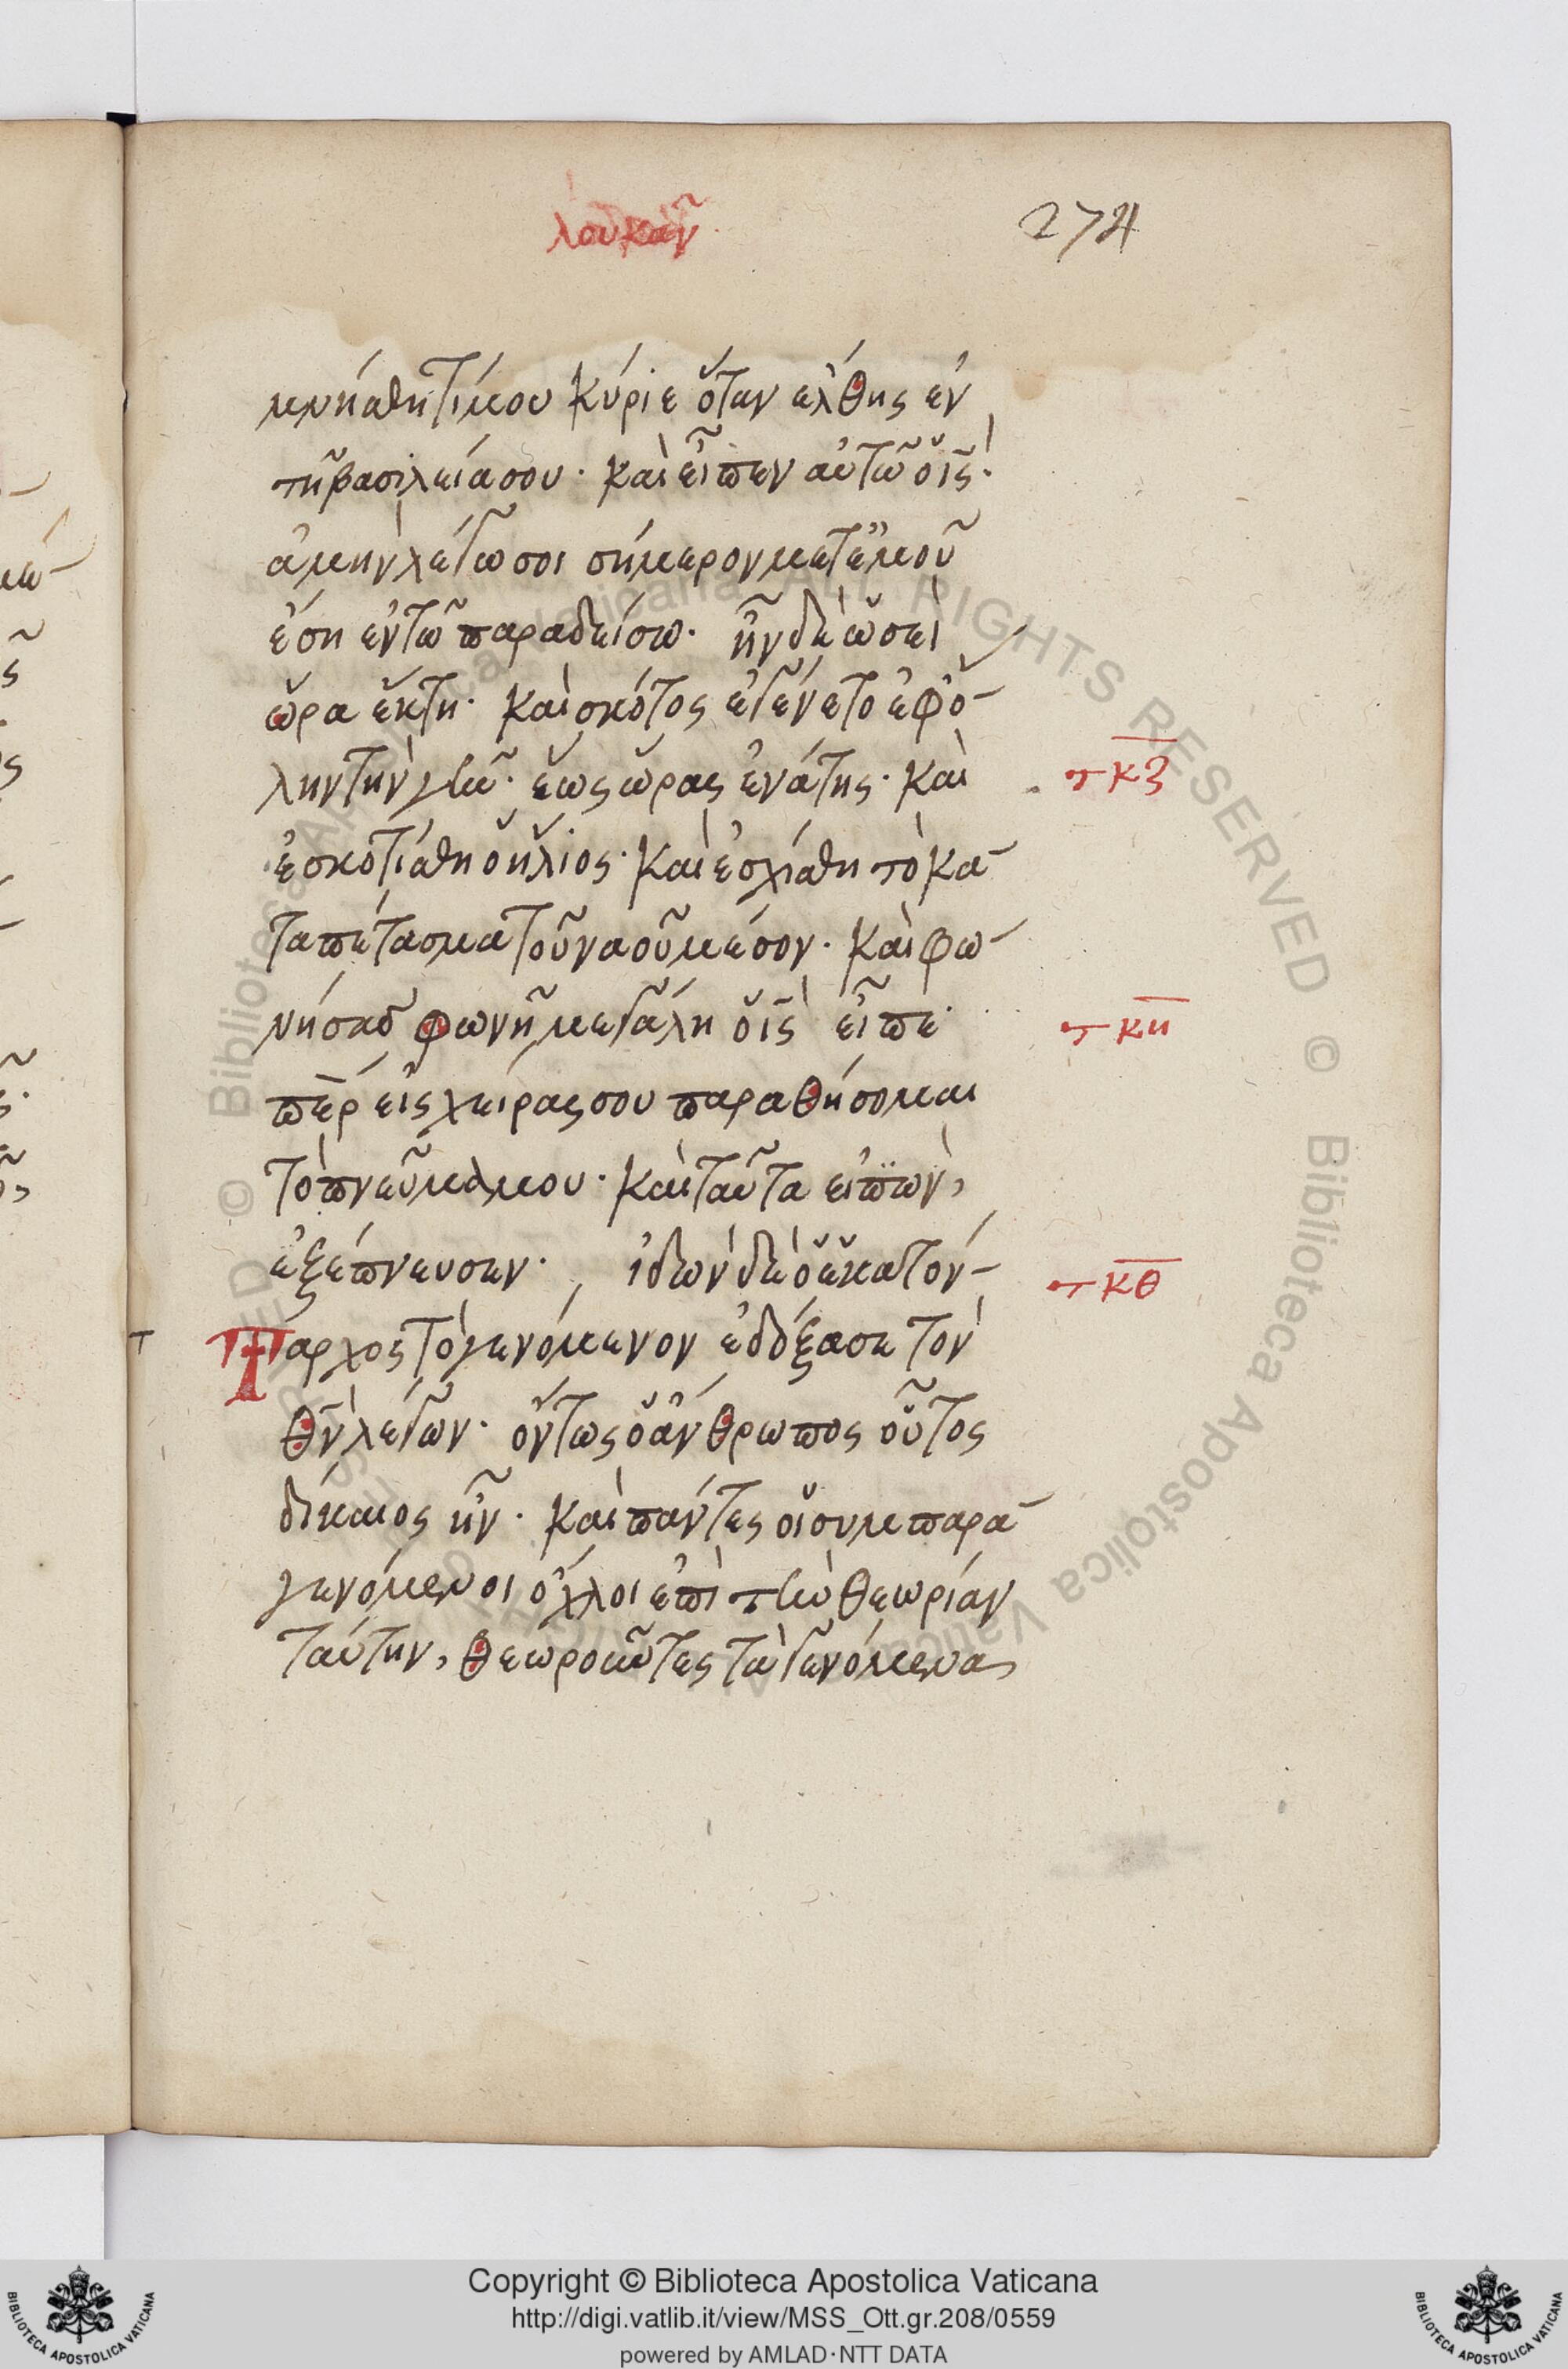 λουκᾶν
274
μνήσθητί μου κύριε ὅταν ἔλθης ἐν
τῆ βασιλεία σου· καὶ εἶπεν αὐτῶ ὁ ις·
ἀμὴν λέγω σοι σήμερον μετ ἐμοῦ
ἔση ἐν τῶ παραδείσω· ἦν δὲ ὡσεὶ
ὥρα ἕκτη· καὶ σκότος ἐγένετο ἐφ ὅ-
λην τὴν γῆν· ἕως ὥρας ἐνάτης· καὶ
τ κζ
ἐσκοτίσθη ὁ ἥλιος· καὶ ἐσχίσθη τὸ κα-
ταπέτασμα τοῦ ναοῦ μέσον· καὶ φω-
νήσας φωνῆ μεγάλη ὁ ις εἶπε·
τ κη
περ εἰς χεῖρας σου παραθήσομαι
τὸ πνεῦμά μου· καὶ ταῦτα εἰπὼν,
ἐξέπνευσεν· ἰδὼν δὲ ὁ ἑκατόν-
τ κθ
Ταρχος τὸ γενόμενον ἐδόξασε τὸν
θν λέγων· ὄντως ὁ ἄνθρωπος οὗτος
δίκαιος ἦν· καὶ πάντες οἱ συμπαρα-
γενόμενοι ὄχλοι ἐπὶ τὴν θεωρίαν
ταύτην, θεωροῦντες τὰ γενόμενα
Copyright © Biblioteca Apostolica Vaticana
http://digi.vatlib.it/view/MSS_Ott.gr.208/0559
powered by AMLAD·NTT DATA
BIBLIOTECA APOSTOLICA VATICANA
BIBLIOTECA APOSTOLICA VATICANA